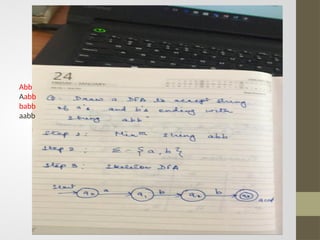 Abb
Aabb
babb
aabb
24
JANUARY
Q: Draw a DFA to accept string
of a's and b's ending with
string abb
Step 1: Min^m string abb
Step 2: Σ = {a, b}
Step 3: Skeleton DFA
start q0 a q1 b q2 b q3